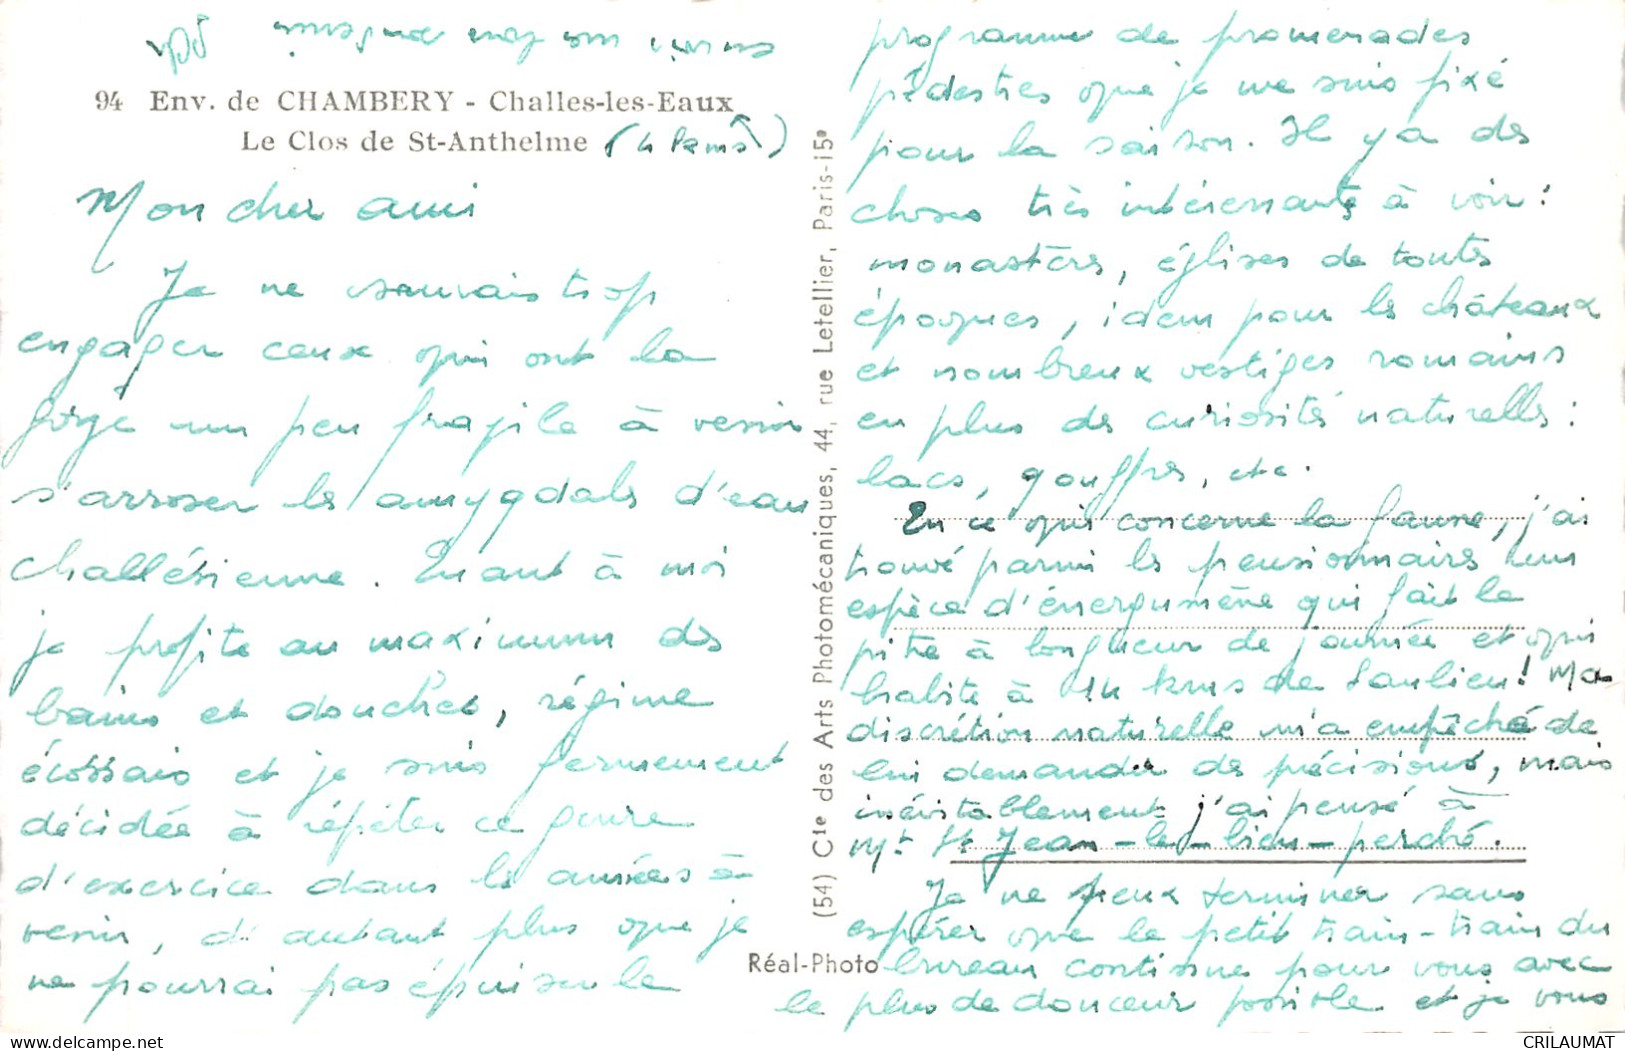 94 Env. de CHAMBERY - Challes-les-Eaux
Le Clos de St-Anthelme
Mon cher ami
Je ne saurais trop
engager ceux qui ont la
gorge un peu fragile à venir
s'arroser les amygdales d'eau
challésienne. Quant à moi
je profite au maximum des
bains et douches, régime
écossais et je suis fermement
décidée à répéter ce genre
d'exercice dans les années à
venir, d'autant plus que je
ne pourrai pas épuiser le
programme de promenades
pédestres que je me suis fixé
pour la saison. Il y a des
choses très intéressantes à voir :
monastères, églises de toutes
époques, idem pour les châteaux
et nombreux vestiges romains
en plus des curiosités naturelles :
lacs, gouffres, etc.
En ce qui concerne la faune, j'ai
trouvé parmi les pensionnaires un
espèce d'énergumène qui fait le
pitre à longueur de journée et qui
habite à kms de Saulieu ! Ma
discrétion naturelle m'a empêché de
lui demander des précisions, mais
inévitablement j'ai pensé à
Mt St Jean-le-bien-perché.
Je ne peux terminer sans
espérer que le petit train-train du
bureau continue pour vous avec
le plus de douceur possible et je vous
(54) Cie des Arts Photomécaniques, 44, rue Letellier, Paris-15e
Réal-Photo
CRILAUMAT